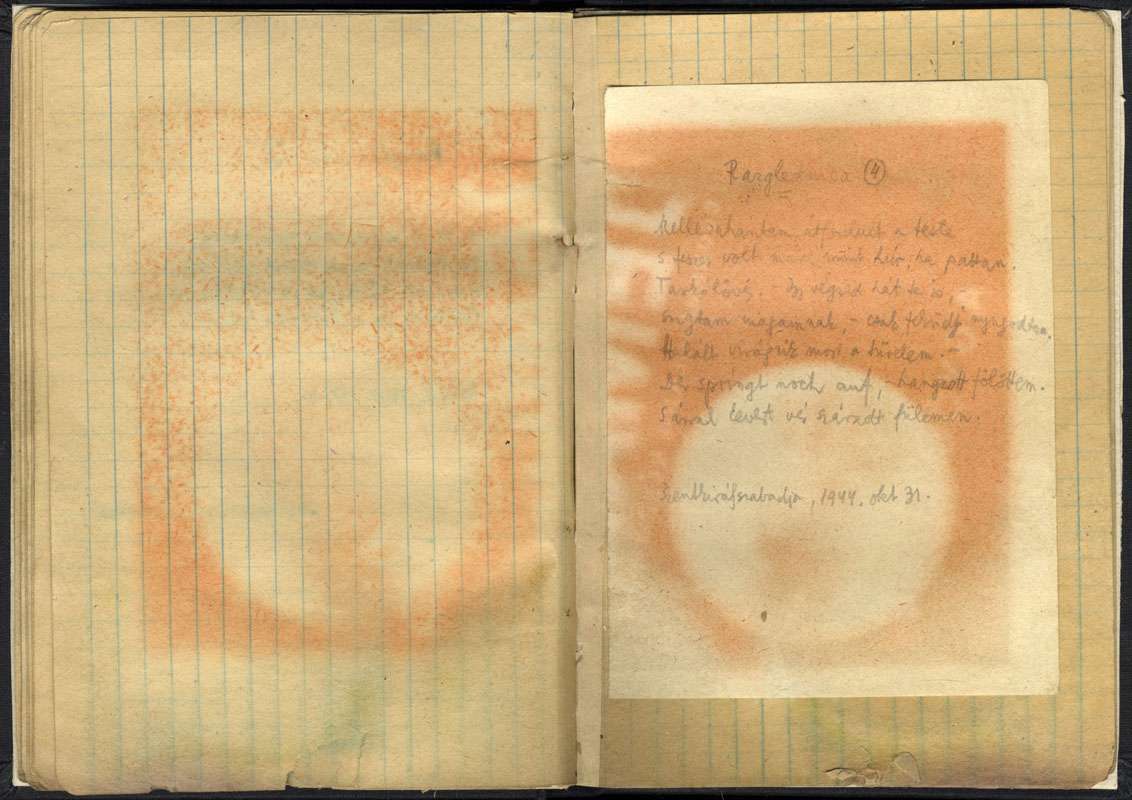 Razglednica (4)
Mellézuhantam, átfordult a teste
s feszes volt már, mint húr, ha pattan.
Tarkólövés. – Így végzed hát te is, –
súgtam magamnak, – csak feküdj nyugodtan.
Halált virágzik most a türelem. –
Der springt noch auf, – hangzott fölöttem.
Sárral kevert vér száradt fülemen.
Szentkirályszabadja, 1944. okt 31.